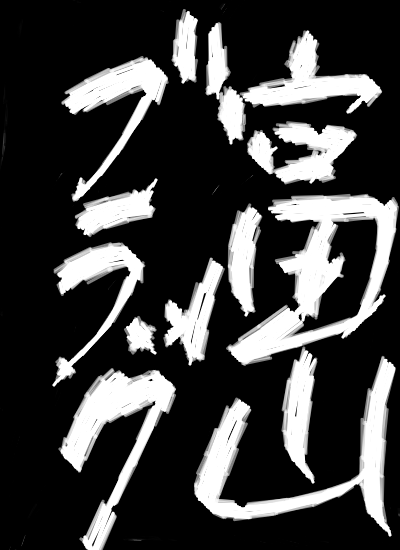 富山
ブラック